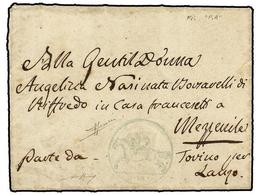 Alla Gentil Donna
Angelica
di Riffredo in Casa Francesetti a
Mezzenile
Parte da Torino per
Lanzo.